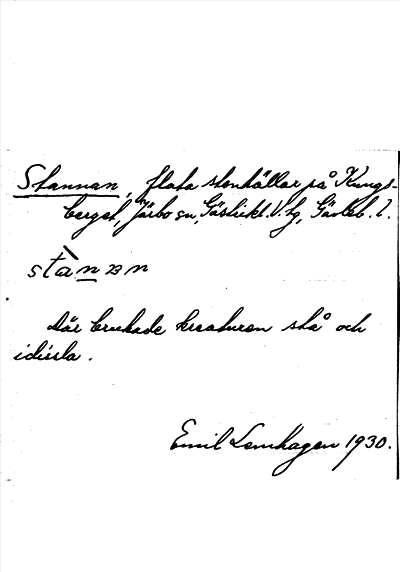 Stannan, flata stenhällar på Kungs-
berget, Järbo sn, Gästrikl. V. tg, Gävleb. l.
stànan
Där brukade kreaturen stå och
idissla.
Emil Lennhagen 1930.